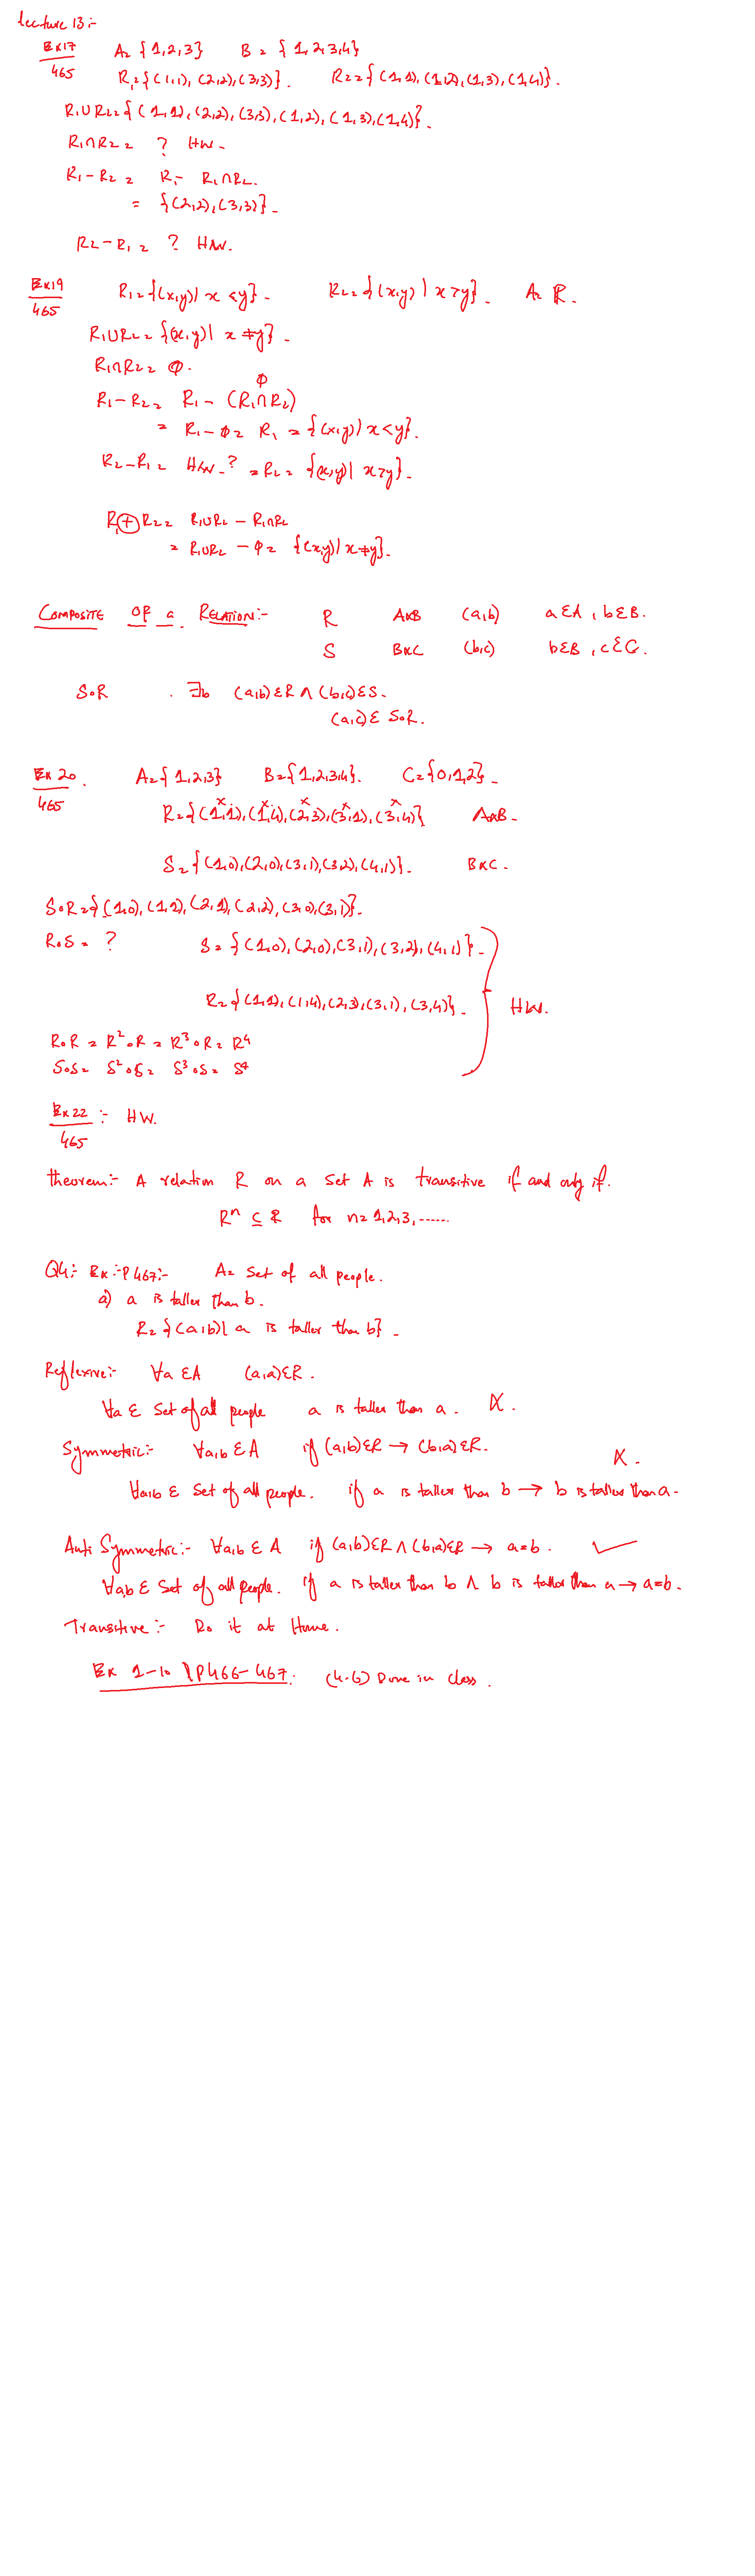 Lecture 13:-
Ex17/465 A = {1,2,3} B = {1,2,3,4}
R₁={(1,1), (2,2), (3,3)}. R₂={(1,1), (1,2), (1,3), (1,4)}.
R₁∪R₂={(1,1), (2,2), (3,3), (1,2), (1,3), (1,4)}.
R₁∩R₂ = ? HW.
R₁-R₂ = R₁ - R₁∩R₂.
= {(2,2), (3,3)}.
R₂-R₁ = ? HW.
Ex19/465 R₁={(x,y)| x<y}. R₂={(x,y)| x>y}. A= ℝ.
R₁∪R₂={(x,y)| x≠y}.
R₁∩R₂= ϕ.
ϕ
R₁-R₂ = R₁- (R₁∩R₂)
= R₁-ϕ = R₁ = {(x,y)| x<y}.
R₂-R₁= HW.? = R₂= {(x,y)| x>y}.
R₁⊕R₂= R₁∪R₂ - R₁∩R₂
= R₁∪R₂ - ϕ = {(x,y)| x≠y}.
COMPOSITE OF a RELATION:- R AxB (a,b) a∈A, b∈B.
S BxC (b,c) b∈B, c∈C.
S∘R . ∃b (a,b)∈R ∧ (b,c)∈S.
(a,c)∈ S∘R.
Ex 20/465. A={1,2,3} B={1,2,3,4}. C={0,1,2}.
R={(1,1), (1,4), (2,3), (3,1), (3,4)} AxB.
S={(1,0), (2,0), (3,1), (3,2), (4,1)}. BxC.
S∘R={(1,0), (1,1), (2,1), (2,2), (3,0), (3,1)}.
R∘S = ? S={(1,0), (2,0), (3,1), (3,2), (4,1)}.
R={(1,1), (1,4), (2,3), (3,1), (3,4)}. HW.
R∘R = R²∘R = R³∘R = R⁴
S∘S = S²∘S = S³∘S = S⁴
Ex22/465 :- HW.
theorem:- A relation R on a set A is transitive if and only if.
Rⁿ ⊆ R for n=1,2,3,......
Q4:- Ex:-P467:- A= set of all people.
a) a is taller than b.
R={(a,b)| a is taller than b}.
Reflexive:- ∀a∈A (a,a)∈R.
∀a∈ Set of all people a is taller than a. X.
Symmetric:- ∀a,b∈A if (a,b)∈R → (b,a)∈R.
X.
∀a,b∈ Set of all people. if a is taller than b → b is taller than a.
Anti Symmetric:- ∀a,b∈A if (a,b)∈R ∧ (b,a)∈R → a=b. ✓
∀a,b∈ Set of all people. if a is taller than b ∧ b is taller than a → a=b.
Transitive:- Do it at Home.
Ex 1-10 \P466-467. (4.6) Done in class.